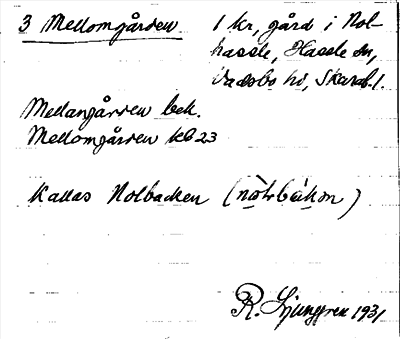 3 Mellomgården
1 kr, gård i Nol-
hassle, Hassle sn,
Vadsbo hd, Skarab. l.
Mellangården bek.
Mellomgården kb 23
Kallas Nolbacken (nòɫbákən)
R. Ljunggren 1931